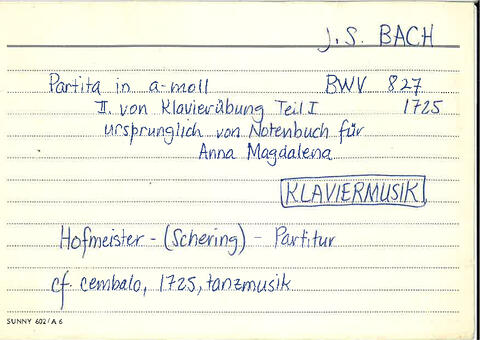 J.S. BACH
Partita in a-moll BWV 827
II. von Klavierübung Teil I 1725
ursprunglich von Notenbuch für
Anna Magdalena
KLAVIERMUSIK
Hofmeister - (Schering) - Partitur
cf. cembalo, 1725, tanzmusik
SUNNY 602/A 6